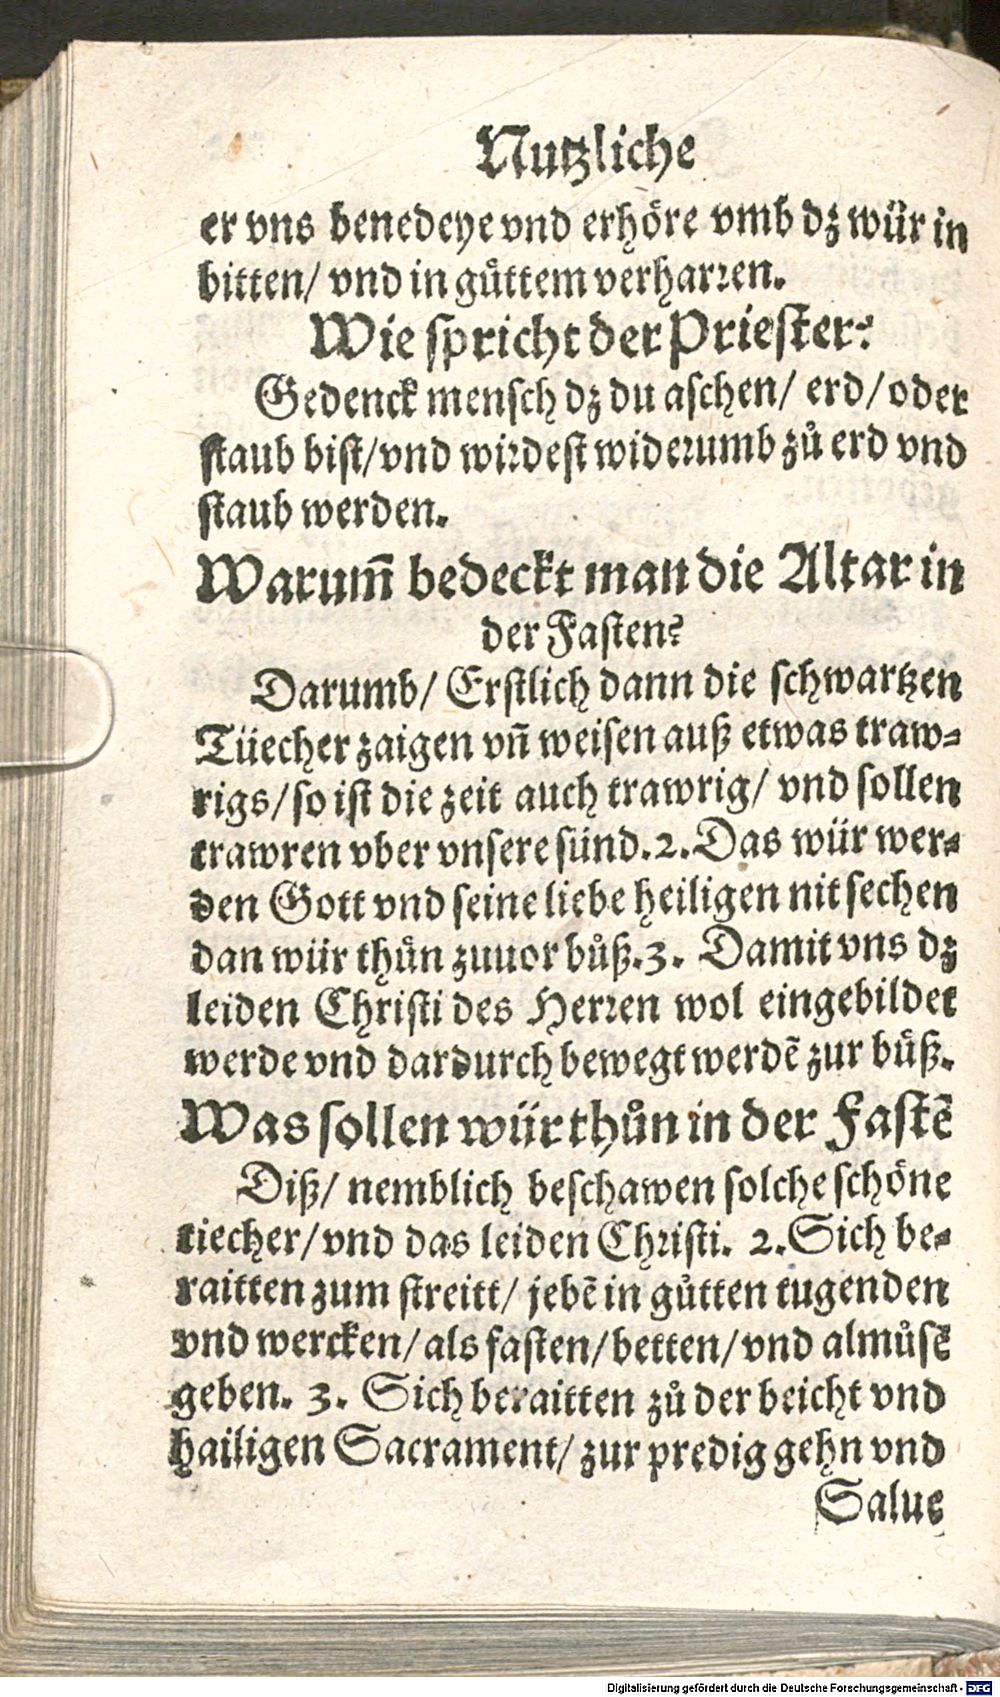 Nutzliche
er vns benedeye vnd erhöre vmb dz wür in
bitten/ vnd in gůttem verharren.
Wie spricht der Priester?
Gedenck mensch dz du aschen/ erd/ oder
staub bist/ vnd wirdest widerumb zů erd vnd
staub werden.
Warum̃ bedeckt man die Altar in
der Fasten?
Darumb/ Erstlich dann die schwartzen
Tüecher zaigen vñ weisen auß etwas traw-
rigs/ so ist die zeit auch trawrig/ vnd sollen
trawren vber vnsere sünd. 2. Das wür wer-
den Gott vnd seine liebe heiligen nit sechen
dan wür thůn zuuor bůß. 3. Damit vns dz
leiden Christi des Herren wol eingebildet
werde vnd dardurch bewegt werdẽ zur bůß.
Was sollen wür thůn in der Fastẽ
Diß/ nemblich beschawen solche schöne
tiecher/ vnd das leiden Christi. 2. Sich be-
raitten zum streitt/ jebẽ in gůtten tugenden
vnd wercken/ als fasten/ betten/ vnd almůsẽ
geben. 3. Sich beraitten zů der beicht vnd
hailigen Sacrament/ zur predig gehn vnd
Salue
Digitalisierung gefördert durch die Deutsche Forschungsgemeinschaft - DFG